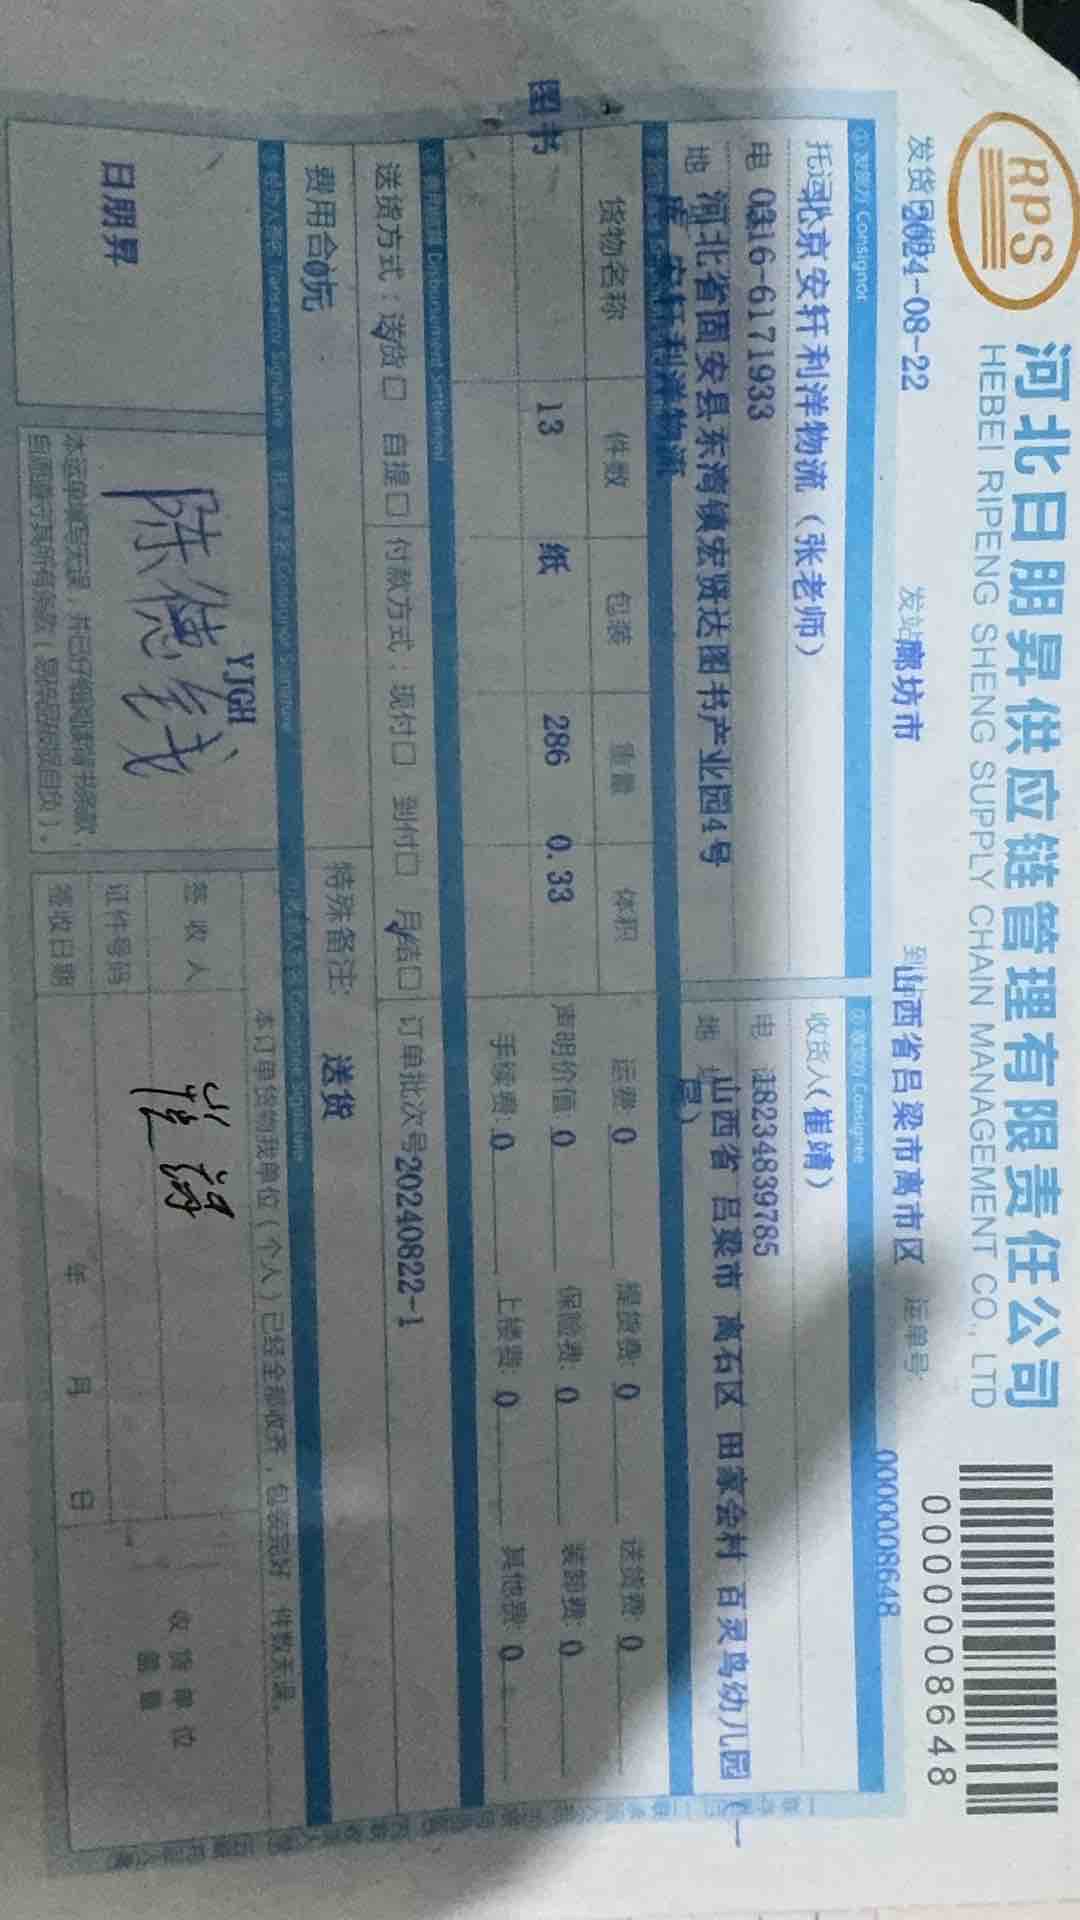 RPS
河北日朋昇供应链管理有限责任公司
HEBEI RIPENG SHENG SUPPLY CHAIN MANAGEMENT CO., LTD
0000008648
发货日期 2024-08-22 发站 廊坊市 到站 山西省吕梁市离市区 运单号: 0000008648
① 发货方 Consignor ② 收货方 Consignee
北京安轩利洋物流（张老师） 收货人(崔靖)
电 0316-6171933 电 18234839785
地 河北省固安县东湾镇宏贤达图书产业园4号
库 安轩利洋物流
地 山西省 吕梁市 离石区 田家会村 百灵鸟幼儿园（一
层）
货物名称 件数 包装 重量 体积 运费 0 提货费: 0 送货费: 0
图书 13 纸 286 0.33 声明价值 0 保险费: 0 装卸费: 0
手续费: 0 上楼费: 0 其他费: 0
Disbursement Settlement
送货方式：送货☑ 自提□ 付款方式：现付□ 到付□ 月结☑ 订单批次号 20240822-1
费用合计 0元 特殊备注: 送货
Consignor Signature Consignee Signature
日朋昇
YJGH
本运单填写无误，并已仔细阅读背书条款，
本订单货物我单位（个人）已经全部收齐，包装完好，件数无误。
签收人 崔靖
证件号码
签收日期 年 月 日
收货单位
盖章